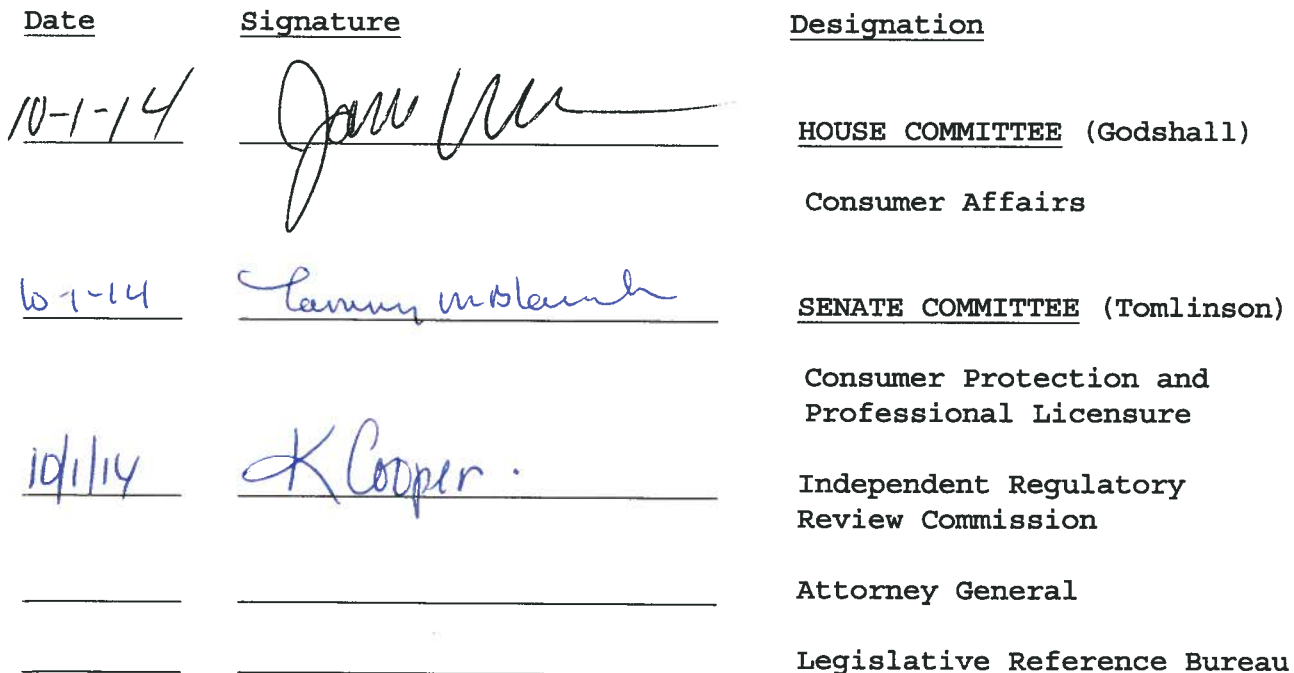 Date Signature Designation
10-1-14 HOUSE COMMITTEE (Godshall)
Consumer Affairs
10-1-14 Tammy SENATE COMMITTEE (Tomlinson)
Consumer Protection and
Professional Licensure
10/1/14 K Cooper. Independent Regulatory
Review Commission
Attorney General
Legislative Reference Bureau